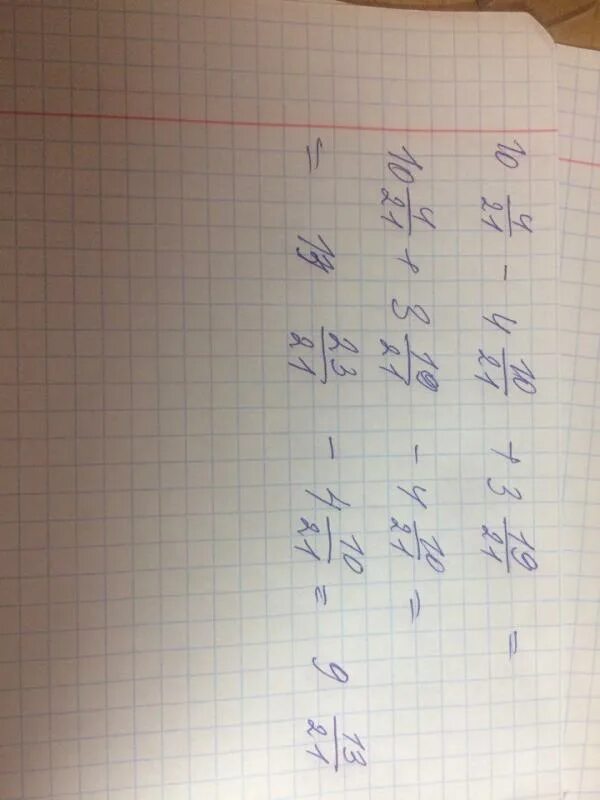 10 4/21 - 4 10/21 + 3 19/21 =
10 4/21 + 3 19/21 - 4 10/21 =
= 13 23/21 - 4 10/21 = 9 13/21